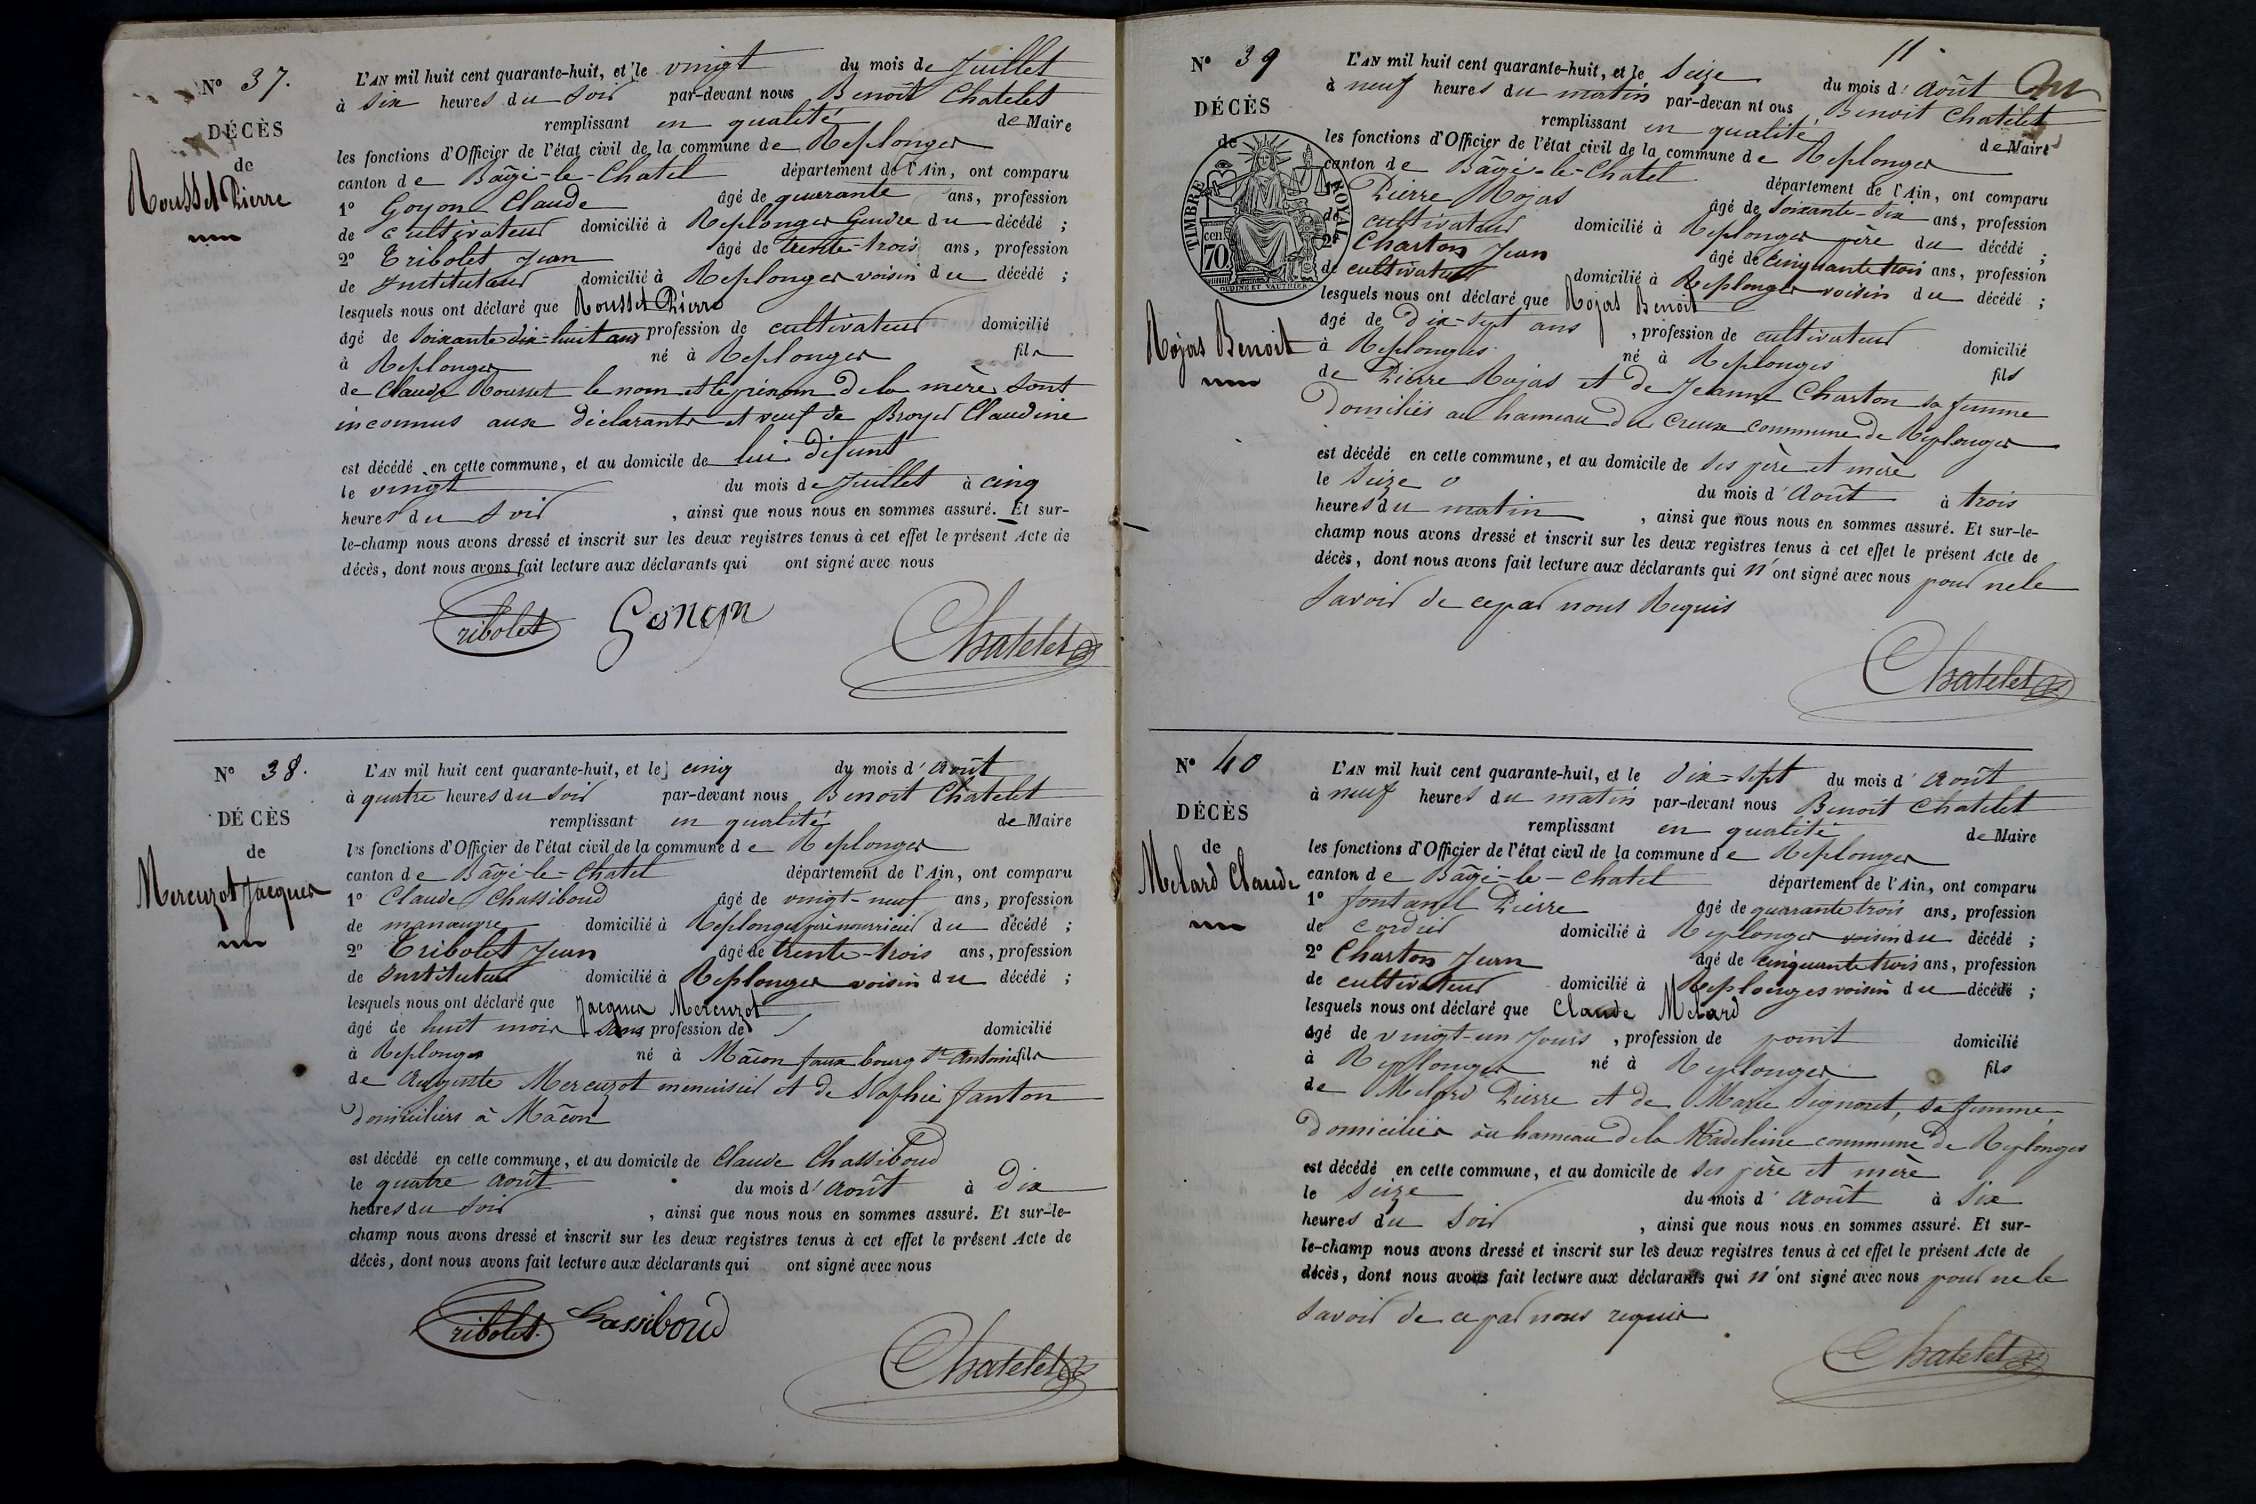 N° 37.
DÉCÈS
de
Rousset Pierre
L'AN mil huit cent quarante-huit, et le vingt du mois de Juillet
à six heures du Soir par-devant nous Benoit Chatelet
remplissant en qualité de Maire
les fonctions d'Officier de l'état civil de la commune de Replonges
canton de Bâgé-le-Chatel département de l'Ain, ont comparu
1° Goyon Claude âgé de quarante ans, profession
de cultivateur domicilié à Replonges Gendre du décédé ;
2° Tribolet Jean âgé de trente-trois ans, profession
de Instituteur domicilié à Replonges voisin du décédé ;
lesquels nous ont déclaré que Rousset Pierre
âgé de soixante dix-huit ans profession de cultivateur domicilié
à Replonges né à Replonges fils
de Claude Rousset le nom et le prénom de la mère sont
inconnus aux déclarants et veuf de Broyer Claudine
est décédé en cette commune, et au domicile de lui défunt
le vingt du mois de Juillet à cinq
heures du Soir , ainsi que nous nous en sommes assuré. Et sur-
le-champ nous avons dressé et inscrit sur les deux registres tenus à cet effet le présent Acte de
décès, dont nous avons fait lecture aux déclarants qui ont signé avec nous
Tribolet Chatelet
N° 38.
DÉCÈS
de
Mercuzot Jacques
L'AN mil huit cent quarante-huit, et le cinq du mois d'Août
à quatre heures du Soir par-devant nous Benoit Chatelet
remplissant en qualité de Maire
les fonctions d'Officier de l'état civil de la commune de Replonges
canton de Bâgé-le-Chatel département de l'Ain, ont comparu
1° Claude Chassiboud âgé de vingt-neuf ans, profession
de manœuvre domicilié à Replonges père nourricier du décédé ;
2° Tribolet Jean âgé de trente-trois ans, profession
de Instituteur domicilié à Replonges voisin du décédé ;
lesquels nous ont déclaré que Jacques Mercuzot
âgé de huit mois sans profession de domicilié
à Replonges né à Mâcon faux bourg St Antoine fils
de Auguste Mercuzot menuisier et de Sophie Fanton
domiciliés à Mâcon
est décédé en cette commune, et au domicile de Claude Chassiboud
le quatre Août du mois d'Août à Dix
heures du Soir , ainsi que nous nous en sommes assuré. Et sur-le-
champ nous avons dressé et inscrit sur les deux registres tenus à cet effet le présent Acte de
décès, dont nous avons fait lecture aux déclarants qui ont signé avec nous
Tribolet Chassiboud
Chatelet
11
N° 39
DÉCÈS
de
TIMBRE ROYAL
70 cen
Rojas Benoit
L'AN mil huit cent quarante-huit, et le Seize du mois d'Août
à neuf heures du matin par-devan nt ous Benoit Chatelet
remplissant en qualité de Maire
les fonctions d'Officier de l'état civil de la commune de Replonges
canton de Bâgé-le-Chatel département de l'Ain, ont comparu
Pierre Rojas âgé de Soixante-Six ans, profession
de cultivateur domicilié à Replonges père du décédé ;
2° Charton Jean âgé de cinquante trois ans, profession
de cultivateur domicilié à Replonges voisin du décédé ;
lesquels nous ont déclaré que Rojas Benoit
âgé de dix-sept ans , profession de cultivateur domicilié
à Replonges né à Replonges fils
de Pierre Rojas et de Jeanne Charton sa femme
domiciliés au hameau du Creux commune de Replonges
est décédé en cette commune, et au domicile de ses père et mère
le Seize du mois d'Août à trois
heures du matin , ainsi que nous nous en sommes assuré. Et sur-le-
champ nous avons dressé et inscrit sur les deux registres tenus à cet effet le présent Acte de
décès, dont nous avons fait lecture aux déclarants qui n'ont signé avec nous pour ne le
Savoir de ce par nous Requis
Chatelet
N° 40
DÉCÈS
de
Melard Claude
L'AN mil huit cent quarante-huit, et le Dix-sept du mois d'Août
à neuf heures du matin par-devant nous Benoit Chatelet
remplissant en qualité de Maire
les fonctions d'Officier de l'état civil de la commune de Replonges
canton de Bâgé-le-Chatel département de l'Ain, ont comparu
1° fontanel Pierre âgé de quarante trois ans, profession
de cordier domicilié à Replonges voisin du décédé ;
2° Charton Jean âgé de cinquante trois ans, profession
de cultivateur domicilié à Replonges voisin du décédé ;
lesquels nous ont déclaré que Claude Melard
âgé de vingt-un Jours , profession de point domicilié
à Replonges né à Replonges fils
de Melard Pierre et de Marie Signoret, sa femme
domiciliés au hameau de la Madeleine commune de Replonges
est décédé en cette commune, et au domicile de ses père et mère
le Seize du mois d'Août à Six
heures du Soir , ainsi que nous nous en sommes assuré. Et sur-
le-champ nous avons dressé et inscrit sur les deux registres tenus à cet effet le présent Acte de
décès, dont nous avons fait lecture aux déclarants qui n'ont signé avec nous pour ne le
Savoir de ce par nous requis
Chatelet